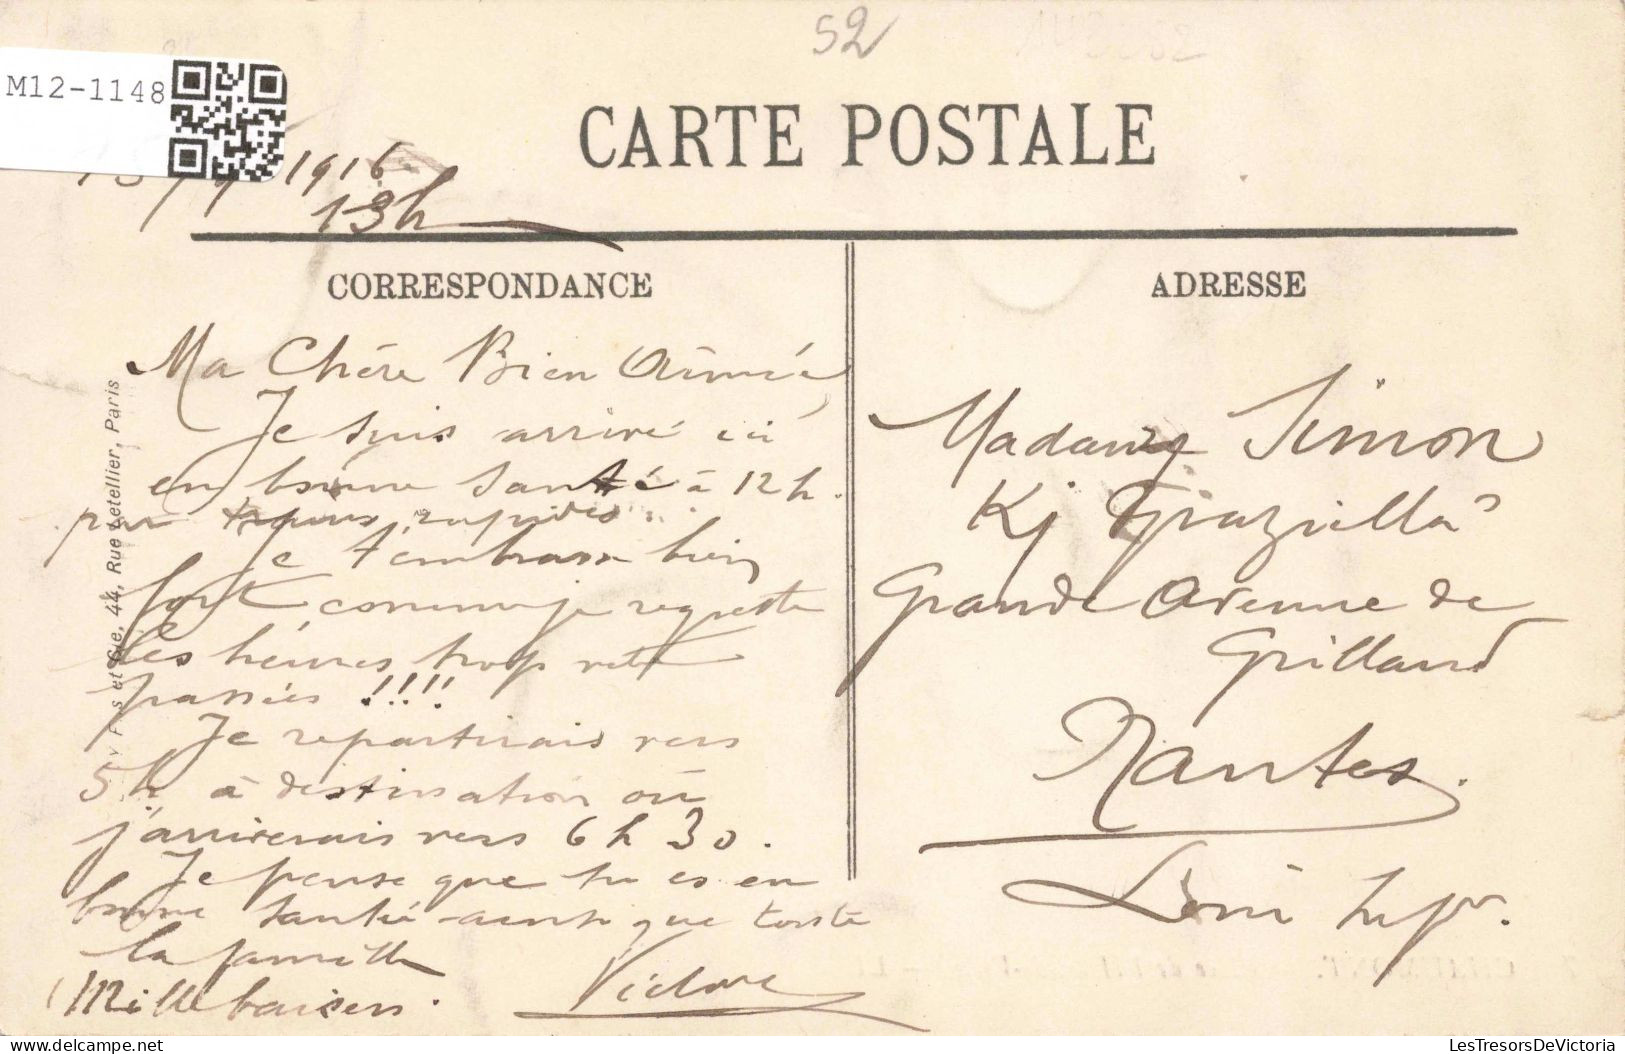 52
M12-1148
CARTE POSTALE
1916
13h
CORRESPONDANCE
ADRESSE
Ma Chère Bien Aimée
Je suis arrivé ici
en bonne santé à 12h.
par rapides
Je t'embrasse bien
fort comme je regrette
les heures trop vite
passées !!!!
Je repartirais vers
5h à destination où
j'arriverais vers 6h30.
Je pense que tu es en
bonne santé ainsi que toute
la famille
Mille baisers.
Victor
Madame Simon
Graziella
Grande Avenue de
Grilland
Nantes.
Loire Infre.
44, Rue Letellier, Paris
LesTresorsDeVictoria